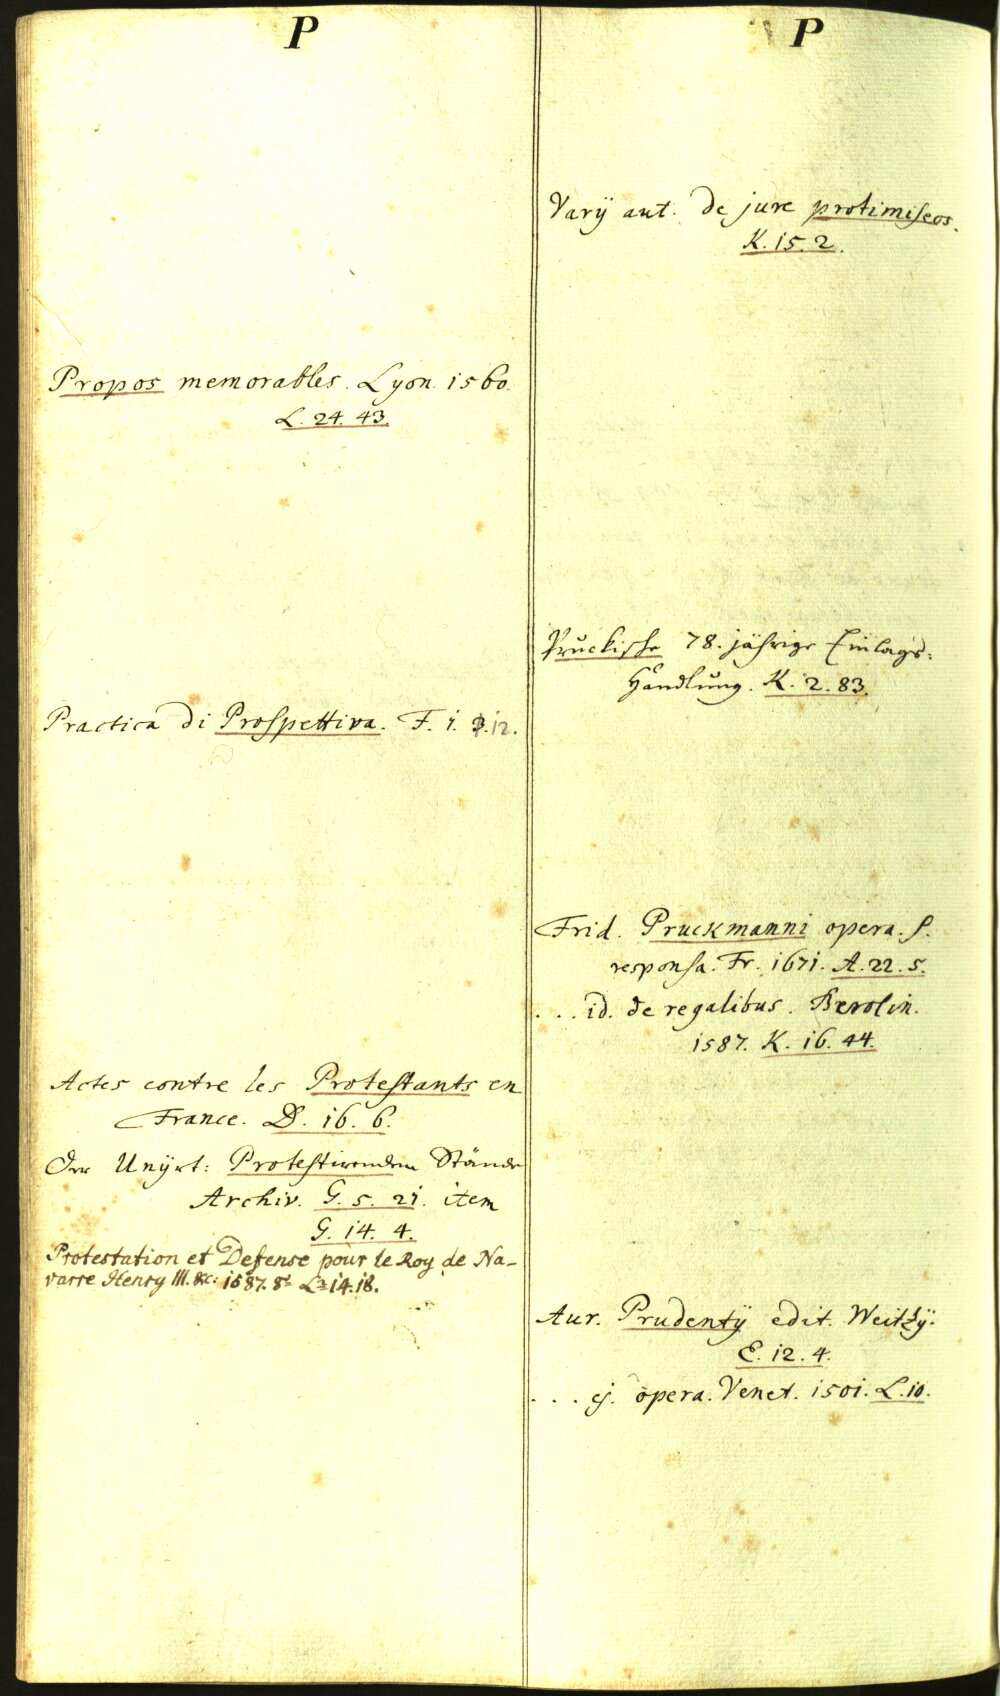 P
Propos memorables. Lyon. 1560.
L. 24. 43.
Practica di Prospettiva. F. 1. 3.12.
Actes contre les Protestants en
France. D. 16. 6.
Der Unijrt: Protestirenden Stände
Archiv. G. 5. 21. item
G. 14. 4.
Protestation et Defense pour le Roy de Na-
varre Henry III. &c: 1587. 8º L. 14. 18.
P
Varij aut. de jure protimiseos.
K. 15. 2.
Pruckische 78. jährige Einlags-
Handlung. K. 2. 83.
Frid. Pruckmanni opera. s.
responsa. Fr. 1671. A. 22. 5.
... id. de regalibus. Berolin.
1587. K. 16. 44.
Aur. Prudentij edit. Weitzij.
E. 12. 4.
... ej. opera. Venet. 1501. L. 10.